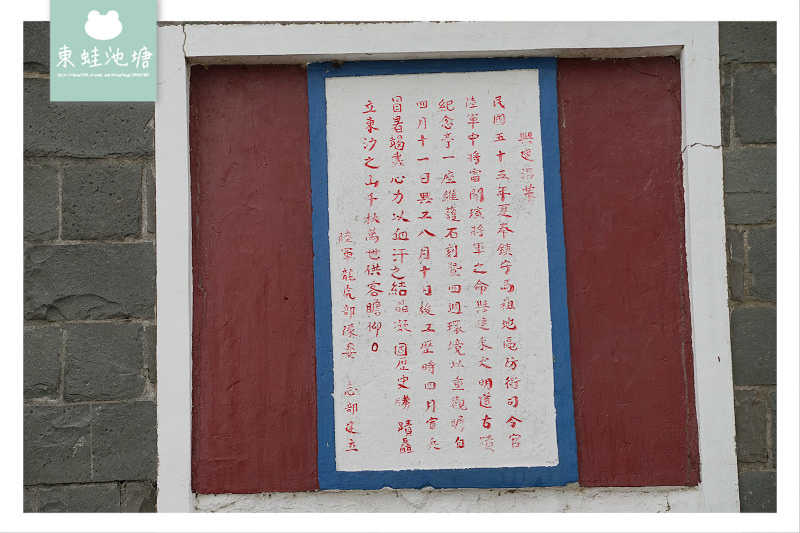 東蛙池塘
興建沿革
民國五十五年夏奉鎮守馬祖地區防衛司令官
陸軍中將雷開瑄將軍之命興建東犬明道古蹟
紀念亭一座維護石刻暨四週環境以重觀瞻自
四月十一日興工八月十日後工歷時四月官兵
冒暑竭盡心力以血汗之結晶凝固歷史勝蹟矗
立東沙之山千秋萬世供客瞻仰。
陸軍龍虎部隊 忘部建立